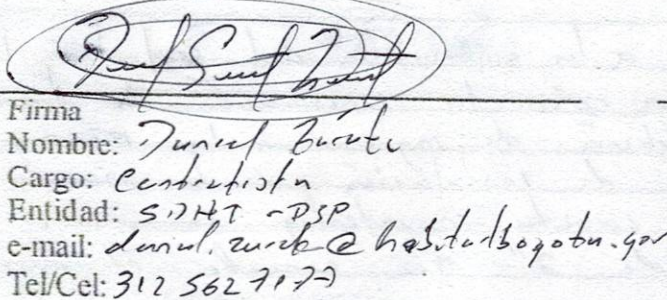 Firma
Nombre: Daniel Zurate
Cargo: Contratista
Entidad: SDHT - DSP
e-mail: daniel.zurate@habitatbogota.gov
Tel/Cel: 312 562 7177